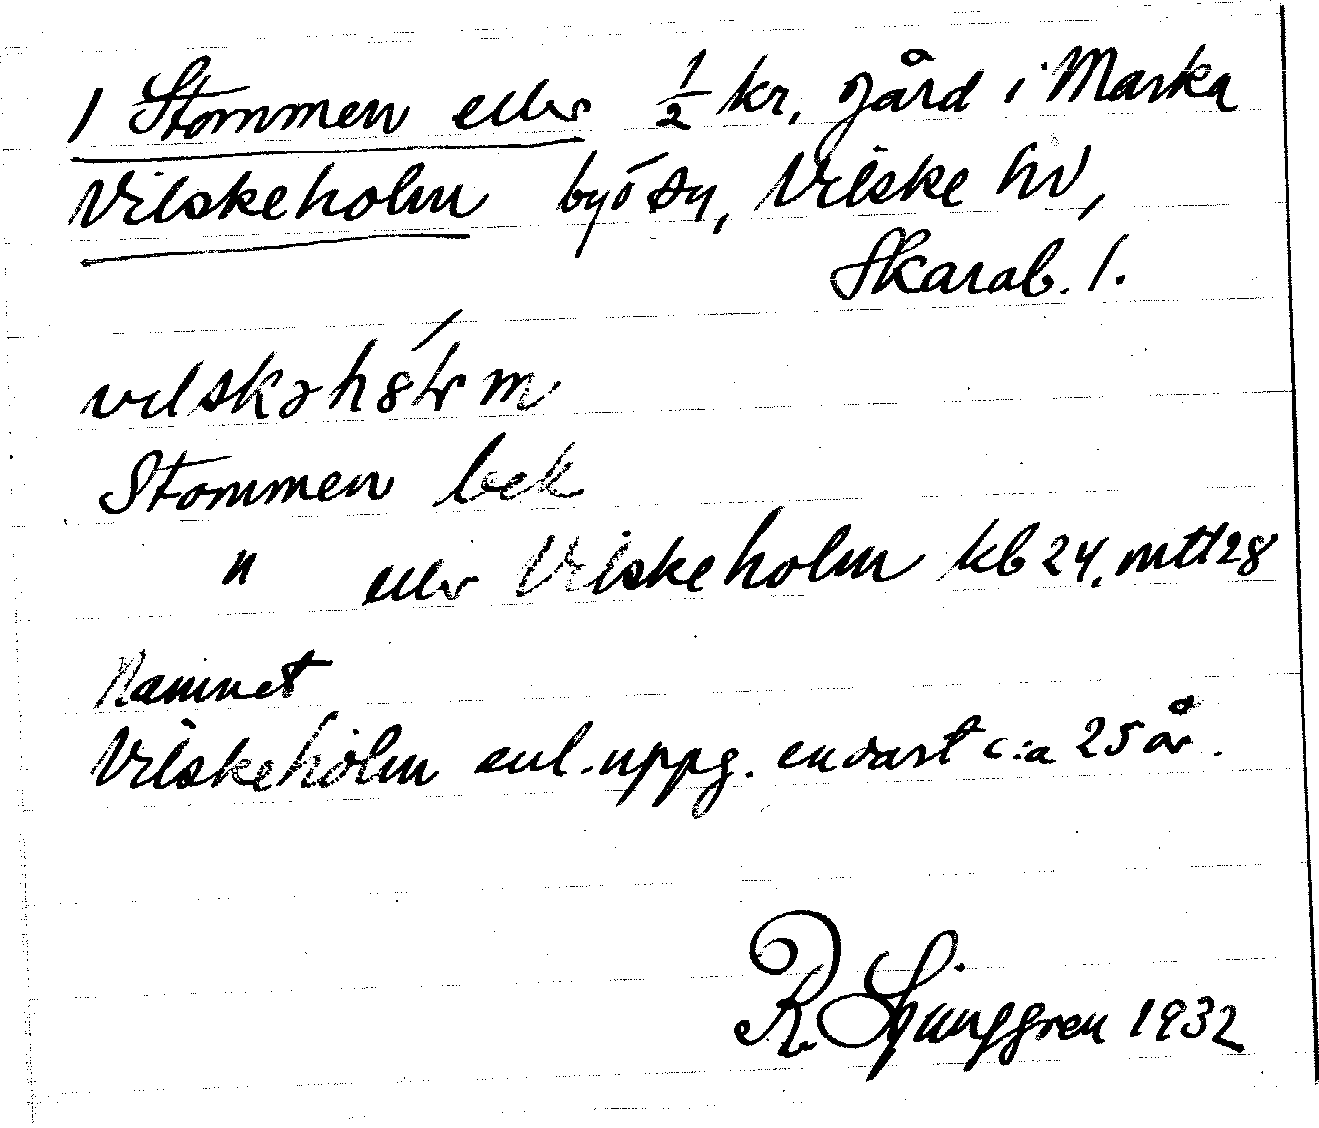 1 Stommen eller ½ kr. gård i Marka
Vilskeholm by o sn, Vilske hd,
Skarab. l.
Stommen bek
" eller Vilskeholm kb 24, mtl 28
Namnet
Vilskeholm enl. uppg. endast c:a 25 år.
R. Ljunggren 1932